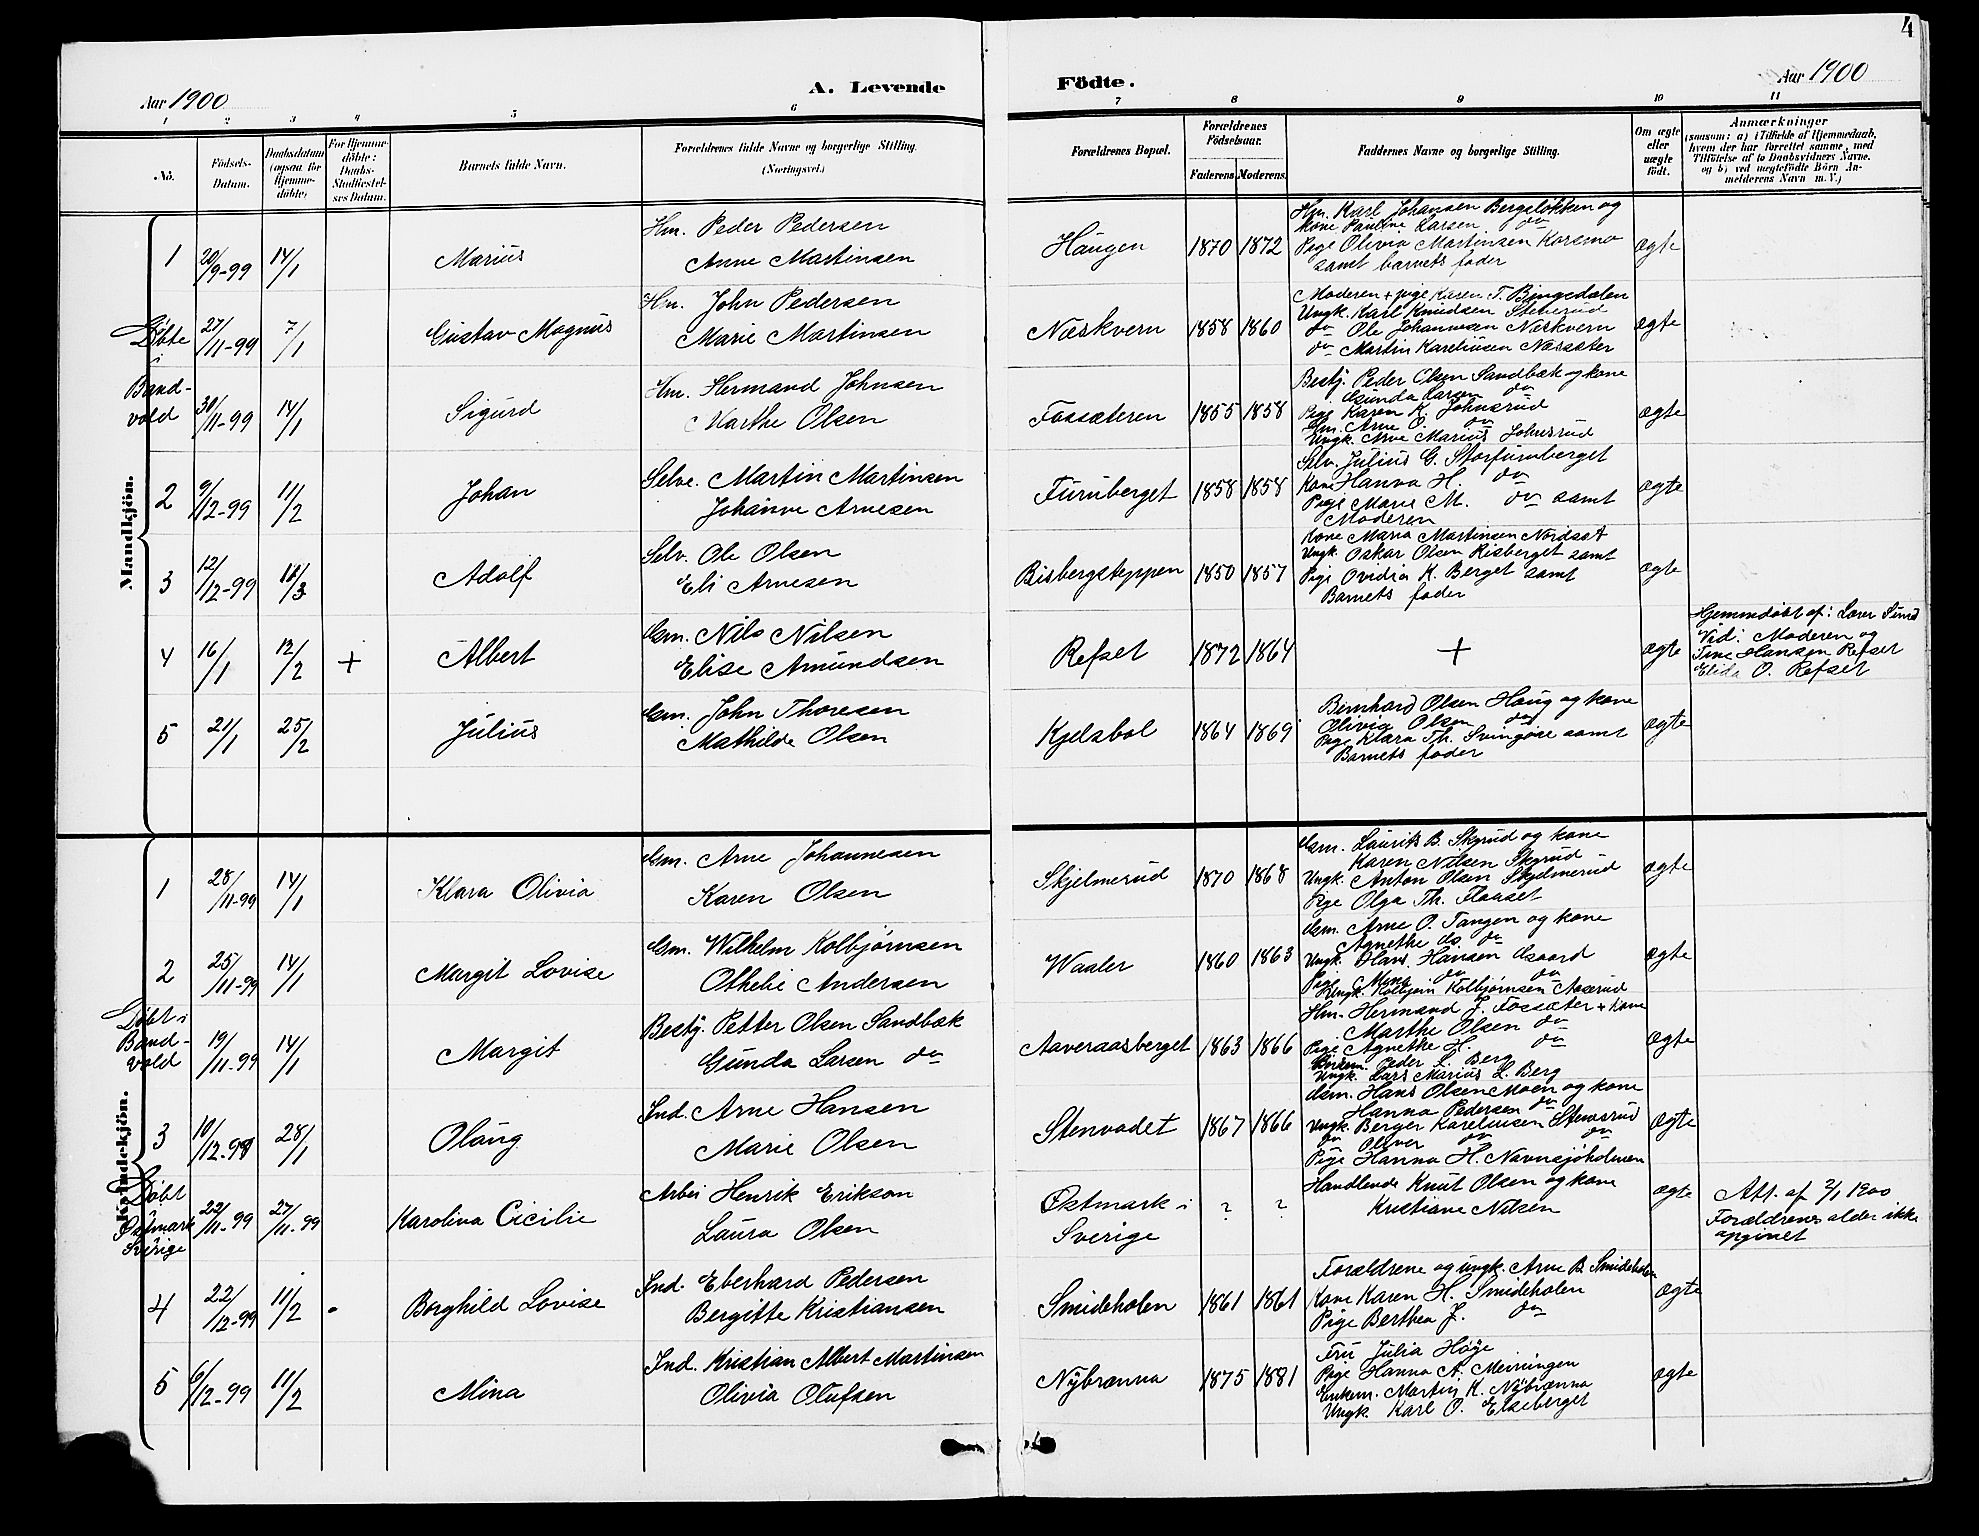 4
Aar 1900
A. Levende
Födte.
Aar 1900
1 2 3 4 5 6 7 8 9 10 11
No.
Födsels-Datum.
Daabsdatum (ogsaa for Hjemmedöbte)
For Hjemmedöbte: Daabs-Stadfæstelses Datum.
Barnets fulde Navn.
Forældrenes fulde Navne og borgerlige Stilling.
(Næringsvei.)
Forældrenes Bopæl.
Forældrenes Födselsaar.
Faderens. Moderens.
Faddernes Navne og borgerlige Stilling.
Om ægte eller uægte födt.
Anmærkninger
(saasom: a) i Tilfælde af Hjemmedaab, hvem der har forrettet samme, med Tilföielse af to Daabsvidners Navne. og b) ved uægtefödte Börn Anmelderens Navn m. V.)
Mandkjön.
1 20/9-99 14/1 Marius
Hm. Peder Pedersen
Anne Martinsen
Haugen 1870 1872
Hm. Karl Johansen Bergsløkken og
kone Pauline Larsen do
Pige Olivia Martinsen Korsmo
samt barnets fader
ægte
Døbte i Brand-vold
27/11-99 7/1 Gustav Magnus
Hm. John Pedersen
Marie Martinsen
Næskvern 1858 1860
Moderen + pige Karen T. Bingedalen
Ungk. Karl Knudsen
do Ole Johannesen Næskvern
do Martin Kareliusen Næssæter
ægte
30/11-99 14/1 Sigurd
Hm. Hermand Johnsen
Marthe Olsen
Fossæteren 1855 1858
Besty. Peder Olsen Sandbæk og kone
Gunda Larsen do
Pige Karen K. Johnsrud
Hm. Arne O. do
Ungk. Arne Marius Johnsrud
ægte
2 9/12-99 11/2 Johan
Selve. Martin Martinsen
Johanne Arnesen
Furuberget 1858 1858
Selv. Julius G. Storfuruberget
Kone Hanna H. do
Pige Marie M. do samt
Moderen
ægte
3 12/12-99 11/3 Adolf
Selv. Ole Olsen
Eli Arnesen
Risbergsteppen 1850 1857
Kone Maria Martinsen Nordset
Ungk. Oskar Olsen Risberget samt
Pige Ovidia K. Berget samt
Barnets fader
ægte
4 16/1 12/2 + Albert
Gm. Nils Nilsen
Elise Amundsen
Refset 1872 1864 +
ægte
Hjemmdøbt af: Lærer Sund
Vid: Moderen og
Tine Hansen Refset
Elida O. Refset
5 21/1 25/2 Julius
Gm. John Thoresen
Mathilde Olsen
Kjelsbøl 1864 1869
Bernhard Olsen Haug og kone
Olivia Olsen do
Pige Klara Th. samt
Barnets fader
ægte
Kvindekjön.
1 28/11-99 14/1 Klara Olivia
Gm. Arne Johannesen
Karen Olsen
Skjelmerud 1870 1868
Gm. Laurits B. Skyrud og kone
Karen Nilsen Skyrud
Ungk. Anton Olsen Skjelmerud
Pige Olga Th. Flaaset
ægte
2 25/11-99 14/1 Margit Lovise
Gm. Wilhelm Kolbjørnsen
Othelie Andersen
Waaler 1860 1863
Gm. Arne O. Tangen og kone
Agnethe do. do
Ungk. Hans Hansen
Pige Mina do do
Ungk. Kolbjørn Kolbjørnsen Aaserud
ægte
Døbt i Brand-vold
19/11-99 14/1 Margit
Besty. Petter Olsen Sandbæk
Gunda Larsen do
Aaveraasberget 1863 1866
Hm. Hermand J. Fossæter + kone
Marthe Olsen do
Pige Agnethe H. do
Peder L. Berg
Ungk. Lars Marius L. Berg
ægte
3 10/12-99 28/1 Olaug
Ind. Arne Hansen
Marie Olsen
Stenvadet 1867 1866
Gm. Hans Olsen Moen og kone
Hanna Pedersen do
Ungk. Berger Kareliusen Stensrud
do Oliver do do
Pige Hanna H. Navnsjøholmen
ægte
Døbt Østmark Sverige
22/11-99 27/11-99 Karolina Cicilie
Arbei Henrik Erikson
Laura Olsen
Østmark i
Sverige
? ?
Handlende Knut Olsen og kone
Kristiane Nilsen
ægte
Att. af 2/1 1900
Forældrenes alder ikke
opgivet
4 22/12-99 11/2 Borghild Lovise
Ind. Eberhard Pedersen
Bergitte Kristiansen
Smideholen 1861 1861
Forældrene og ungk. Arne B. Smideholen
Kone Karen H. Smideholen
Pige Berthea J. do
ægte
5 6/12-99 11/2 Mina
Ind. Kristian Albert Martinsen
Olivia Olufsen
Nybrænna 1875 1881
Fru Julia Høye
Pige Hanna A. Meiningen
Enkem. Martin K. Nybrænna
Ungk. Karl O. Elseberget
ægte